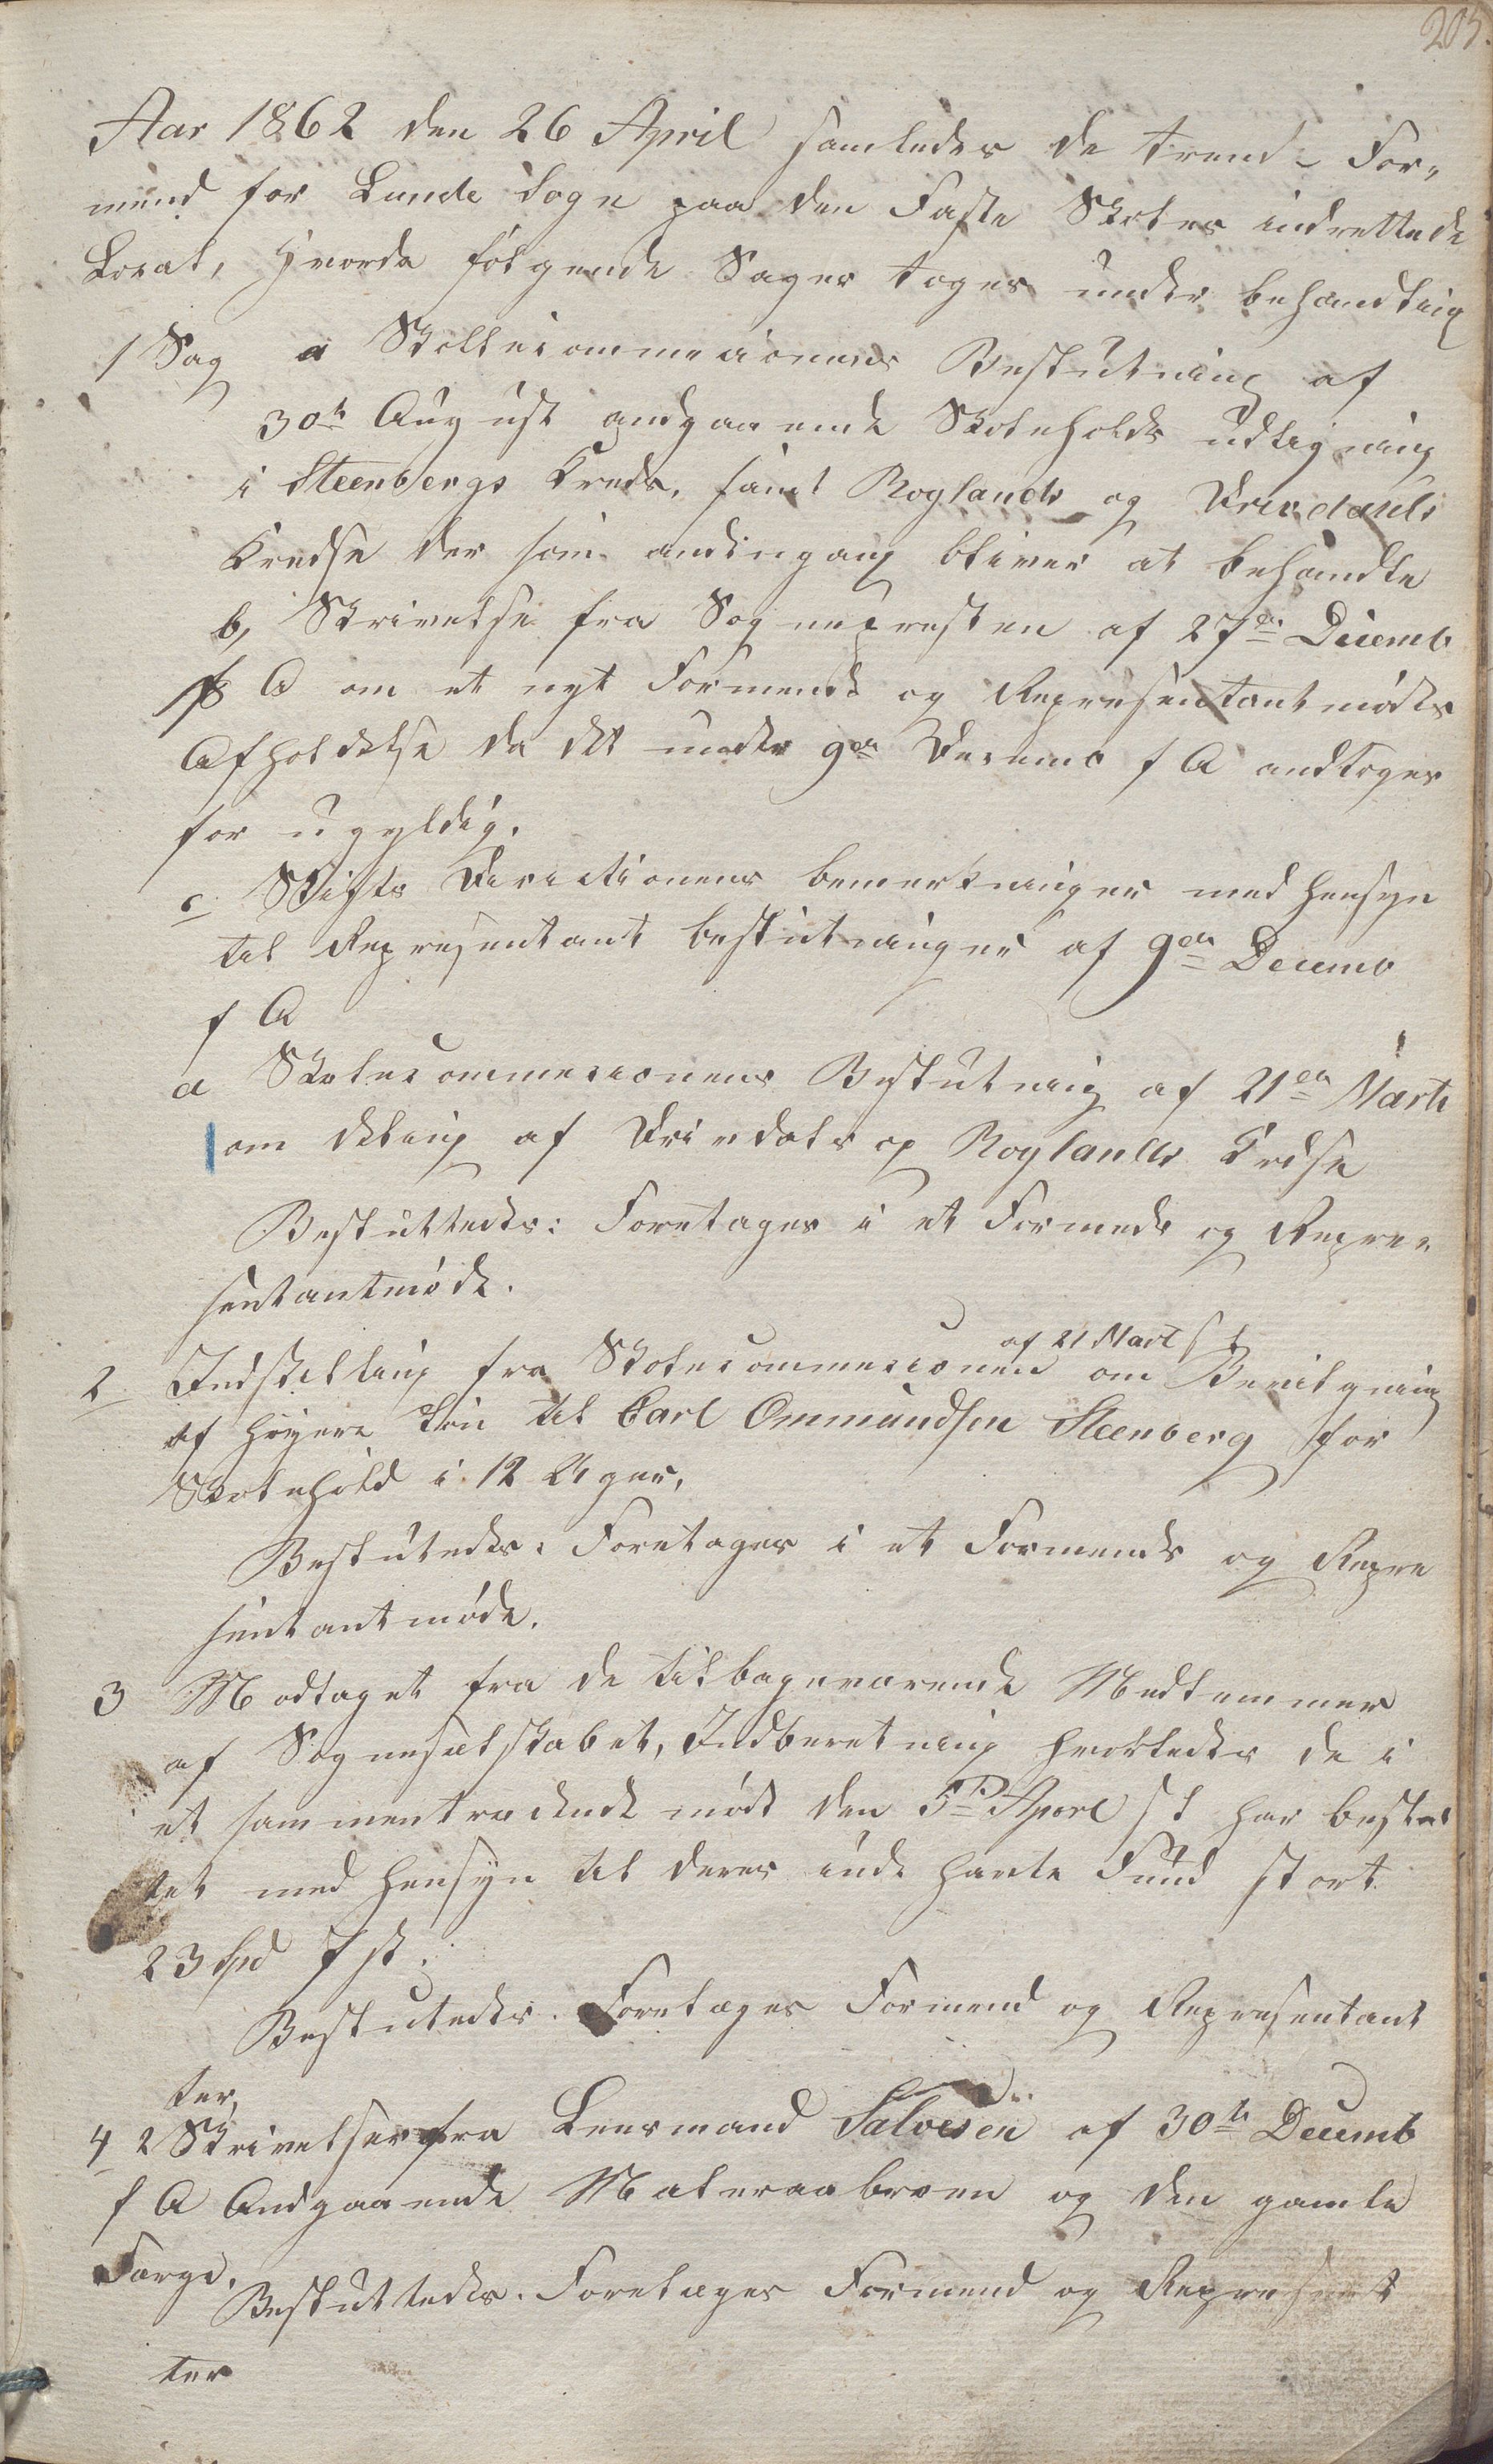 205.
Aar 1862 den 26 April samledes de trend For„
mend for Lunde Sogn paa den Faste Skoles indrettede
Local, Hvorda følgende Sager toges under behandling
1 Sag a Skolecommesionens Beslutning af
30te August andgaaende Skoleholds udligning
i Steenbergs Kreds, samt Roglands og Drivdals
Kredse der som andengang bliver at behandle
b, Skrivelse fra Sognepresten af 27de Decemb
f A om et nyt Formends og Representantmødes
Afholdelse da det under 9de Decemb f A andtoges
for ugyldig.
c Stifts Directionens bemerkninger med hensyn
til Representant beslutninger af 9de Decemb
f A
d Skolecommesionens Beslutning af 21de Marts
om deling af Drivdals og Roglands Kredse
Beslutedes: Foretages i et Formends og Repre„
sentantmøde.
af 21 Mart s A
2 Indstilling fra Skolecommesionen om Bevilgning
af høyere Løn til Carl Ommundsen Steenberg for
Skolehold i 12 Uger,
Beslutedes: Foretages i et Formends og Repre
sentantmøde.
3 Modtaget fra de tilbageværende Medlemmer
af Sogneselskabet, Indberetning hvorledes de i
et sammentredende møde den 5te Aporl s A har beslut
tet med hensyn til deres inde havte Fund stort
23 Spd 7 sk.
Beslutedes. Foretages Formend og Representant
ter,
4 2 Skrivelser fra Lensmand Salvesen af 30te Decemb
f A Andgaaende Moleraabroen og den gamle
Færge.
Beslutedes. Foretages Formend og Represent
ter